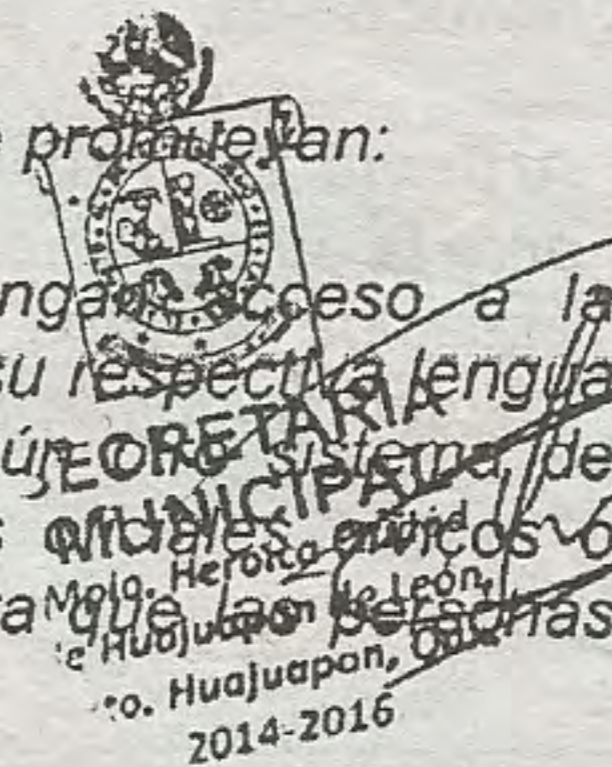 promuevan:
tengan acceso a la
su respectiva lengua
otro sistema de
oficiales únicos o
que las personas
SECRETARIA
MUNICIPAL
Mpio. Heroica Ciudad
de Huajuapan de León,
Dto. Huajuapan, Oax.
2014-2016